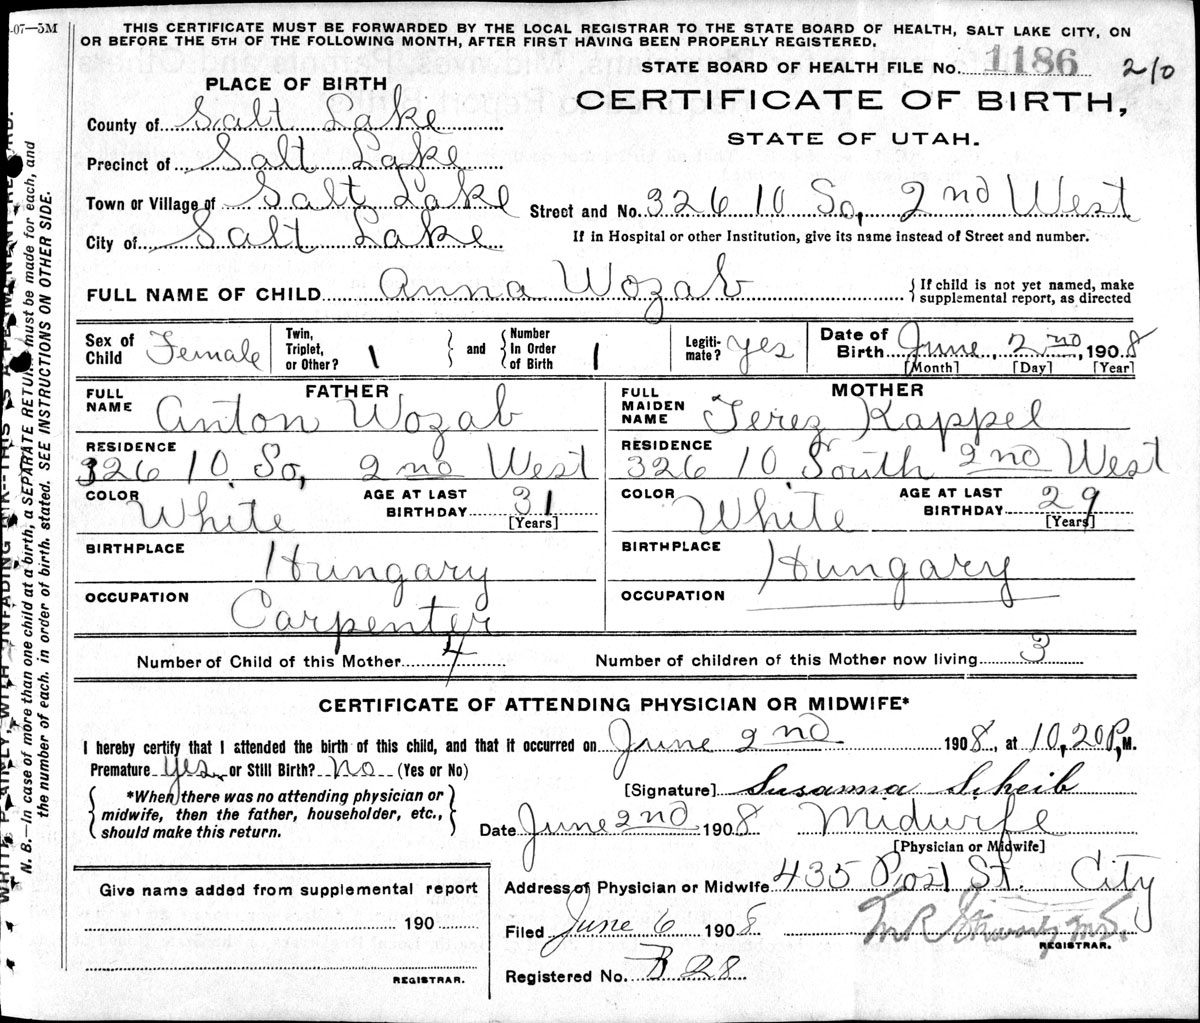 -07—5M
THIS CERTIFICATE MUST BE FORWARDED BY THE LOCAL REGISTRAR TO THE STATE BOARD OF HEALTH, SALT LAKE CITY, ON
OR BEFORE THE 5TH OF THE FOLLOWING MONTH, AFTER FIRST HAVING BEEN PROPERLY REGISTERED.
STATE BOARD OF HEALTH FILE No. 1186 210
PLACE OF BIRTH
CERTIFICATE OF BIRTH,
STATE OF UTAH.
County of Salt Lake
Precinct of Salt Lake
Town or Village of Salt Lake
City of Salt Lake
Street and No. 326 10 So, 2nd West
If in Hospital or other Institution, give its name instead of Street and number.
FULL NAME OF CHILD Anna Wozab
If child is not yet named, make
supplemental report, as directed
Sex of Child Female
Twin, Triplet, or Other? 1
and
Number In Order of Birth 1
Legiti-mate? Yes
Date of Birth June 2nd, 1908
[Month] [Day] [Year]
FATHER
FULL NAME Anton Wozab
RESIDENCE 326 10 So, 2nd West
COLOR White
AGE AT LAST BIRTHDAY 31
[Years]
BIRTHPLACE Hungary
OCCUPATION Carpenter
MOTHER
FULL MAIDEN NAME Terez Kappel
RESIDENCE 326 10 South 2nd West
COLOR White
AGE AT LAST BIRTHDAY 29
[Years]
BIRTHPLACE Hungary
OCCUPATION
Number of Child of this Mother 4
Number of children of this Mother now living 3
CERTIFICATE OF ATTENDING PHYSICIAN OR MIDWIFE*
I hereby certify that I attended the birth of this child, and that it occurred on June 2nd 1908, at 10,20 P,M.
Premature yes or Still Birth? no (Yes or No)
*When there was no attending physician or
midwife, then the father, householder, etc.,
should make this return.
[Signature] Susanna Scheib
Date June 2nd 1908 Midwife
[Physician or Midwife]
Address of Physician or Midwife 435 Post St. City
Filed June 6 1908
REGISTRAR.
Registered No. B 28
Give name added from supplemental report
190
REGISTRAR.
N. B.—In case of more than one child at a birth, a SEPARATE RETURN must be made for each, and
the number of each, in order of birth, stated. SEE INSTRUCTIONS ON OTHER SIDE.